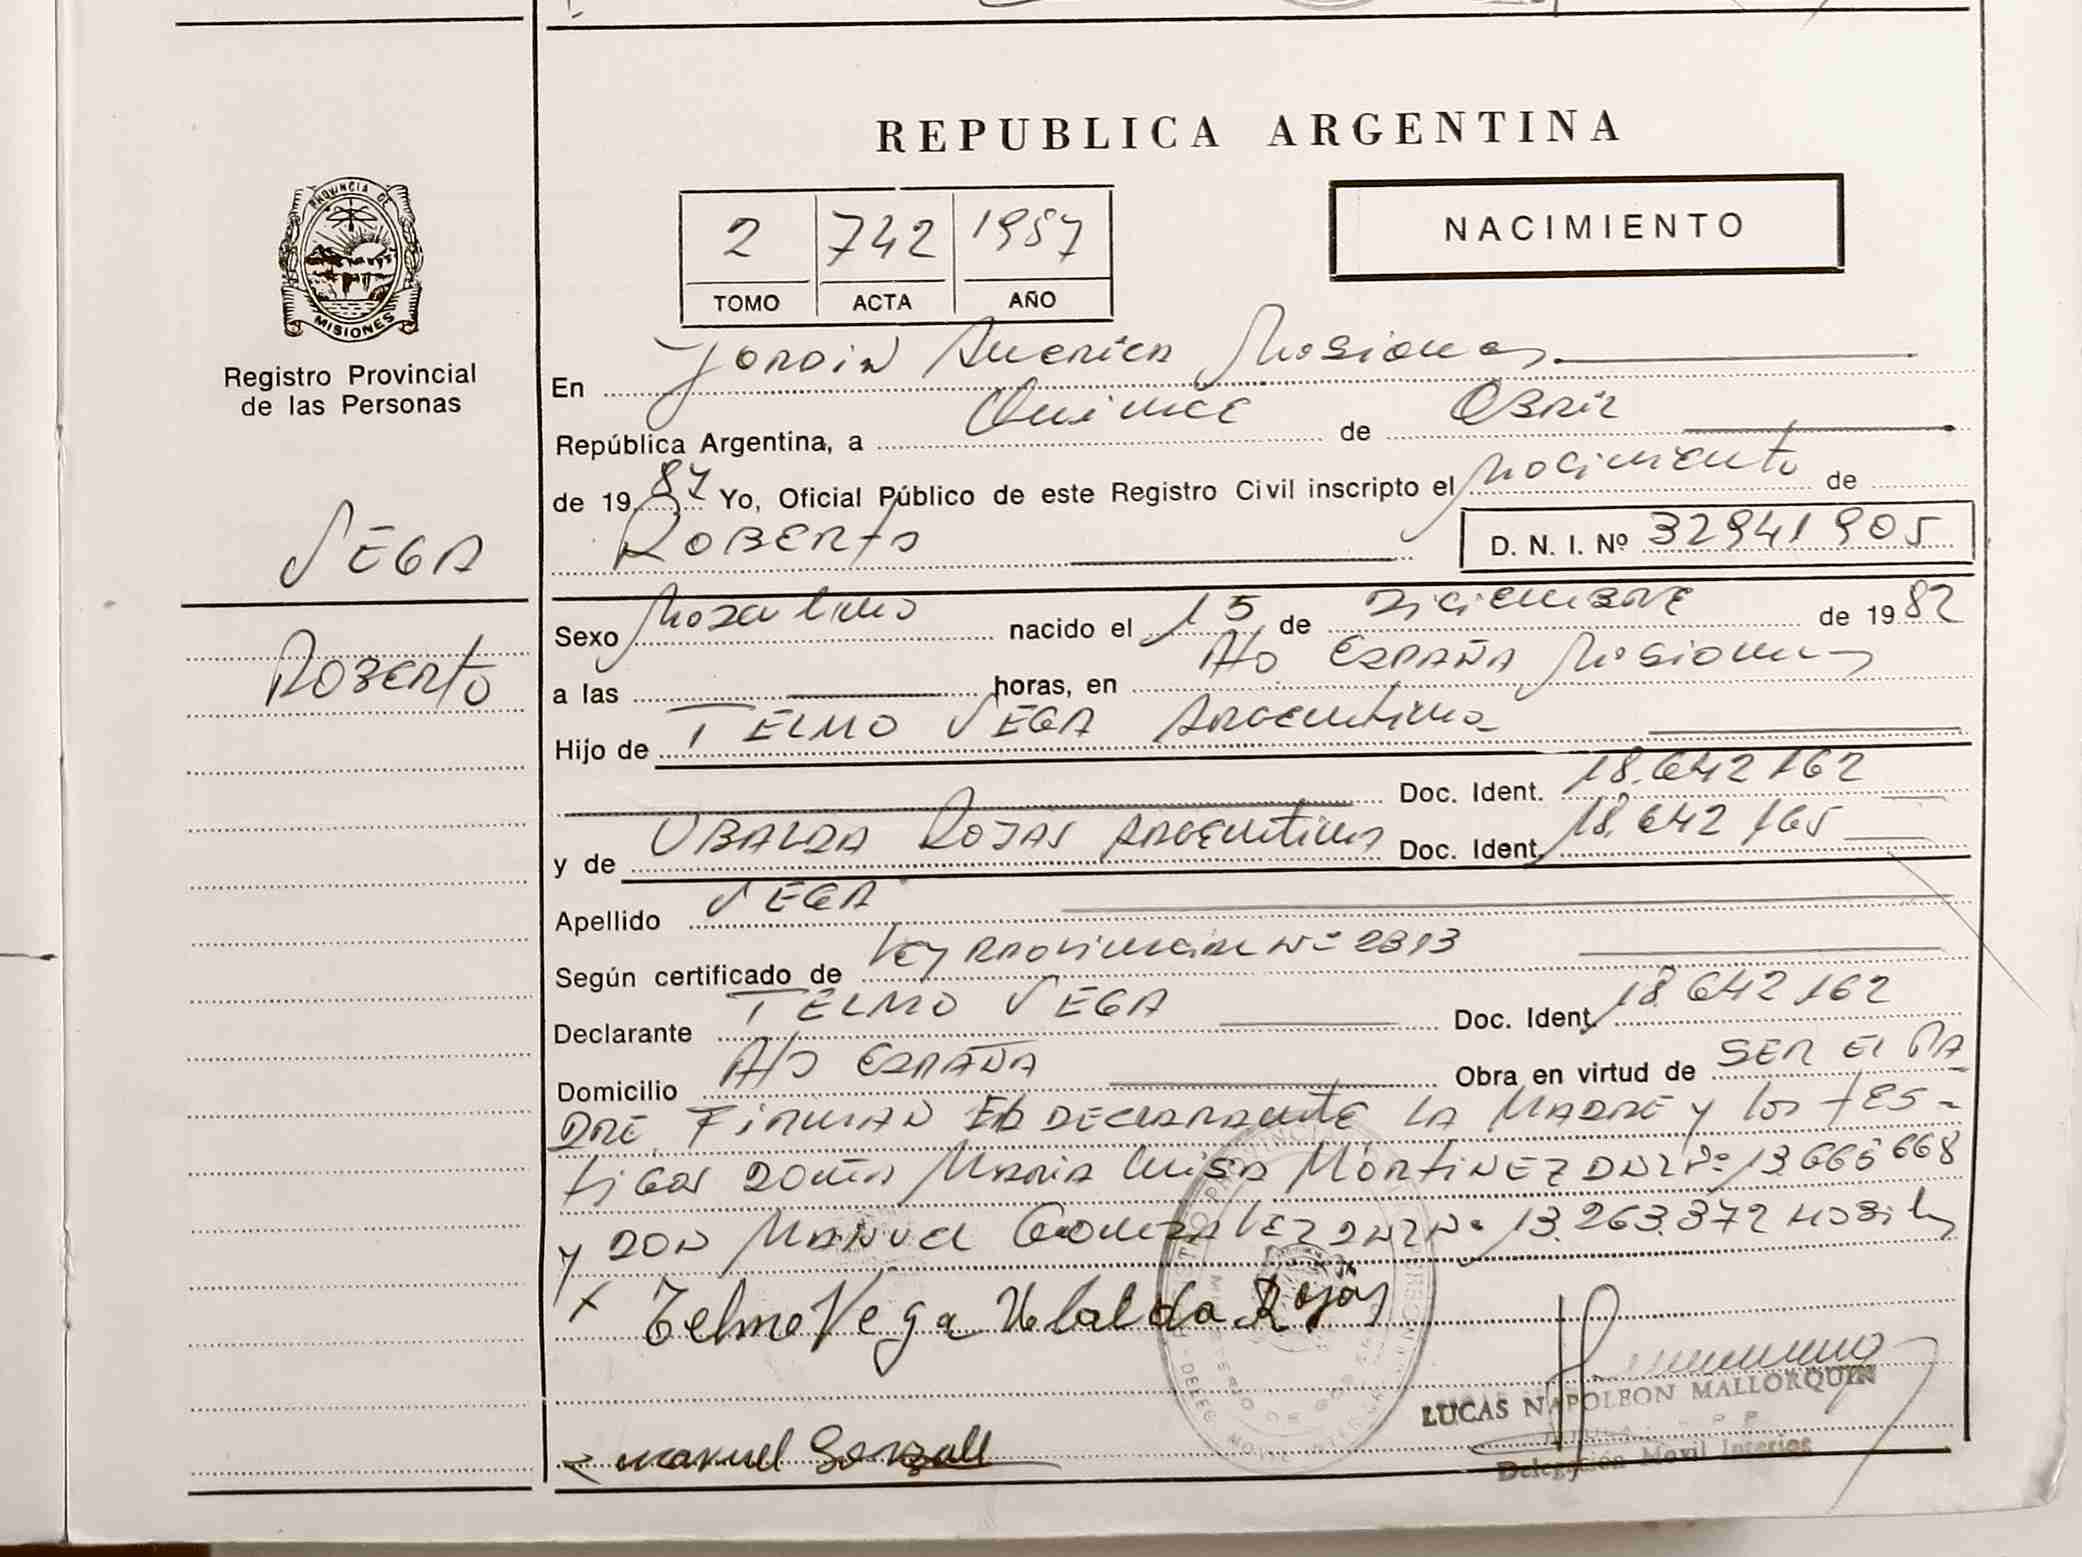 REPUBLICA ARGENTINA
NACIMIENTO
2 742 1987
TOMO ACTA AÑO
PROVINCIA DE
MISIONES
Registro Provincial
de las Personas
VEGA
Roberto
En Jardin America Misiones
República Argentina, a Quince de Abril
de 1987 Yo, Oficial Público de este Registro Civil inscripto el Nacimiento de
ROBERTO D. N. I. Nº 32941905
Sexo Masculino nacido el 15 de Diciembre de 1982
a las horas, en A/o ESPAÑA Misiones
Hijo de TELMO VEGA Argentino
Doc. Ident. 18.642162
y de UBALDA ROJAS Argentina Doc. Ident. 18.642165
Apellido VEGA
Según certificado de Ley Provincial Nº 2313
Declarante TELMO VEGA Doc. Ident. 18.642162
Domicilio A/o ESPAÑA Obra en virtud de SER El PA
DRE. FIRMAN El DECLARANTE LA MADRE y los tes-
tigos Doña Maria Luisa MARTINEZ DNI Nº 13666668
y DON Manuel Gonzalez DNI Nº 13.263.372
x Telmo Vega Ubalda Rojas
LUCAS NAPOLEON MALLORQUIN
Delegación Movil Interior
manuel Gonzalez